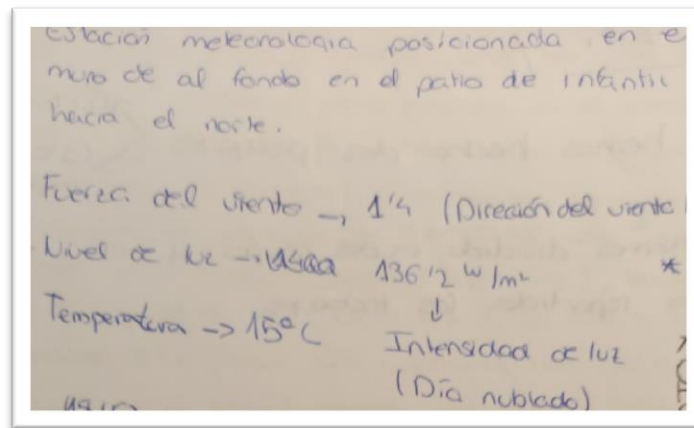 Estación meteorologia posicionada en e
muro de al fondo en el patio de infantil
hacia el norte.
Fuerza del viento → 1'4 (Direción del viento
Nivel de luz → 136'2 w/m² *
↓
Temperatura -> 15°C Intensidad de luz
(Día nublado)